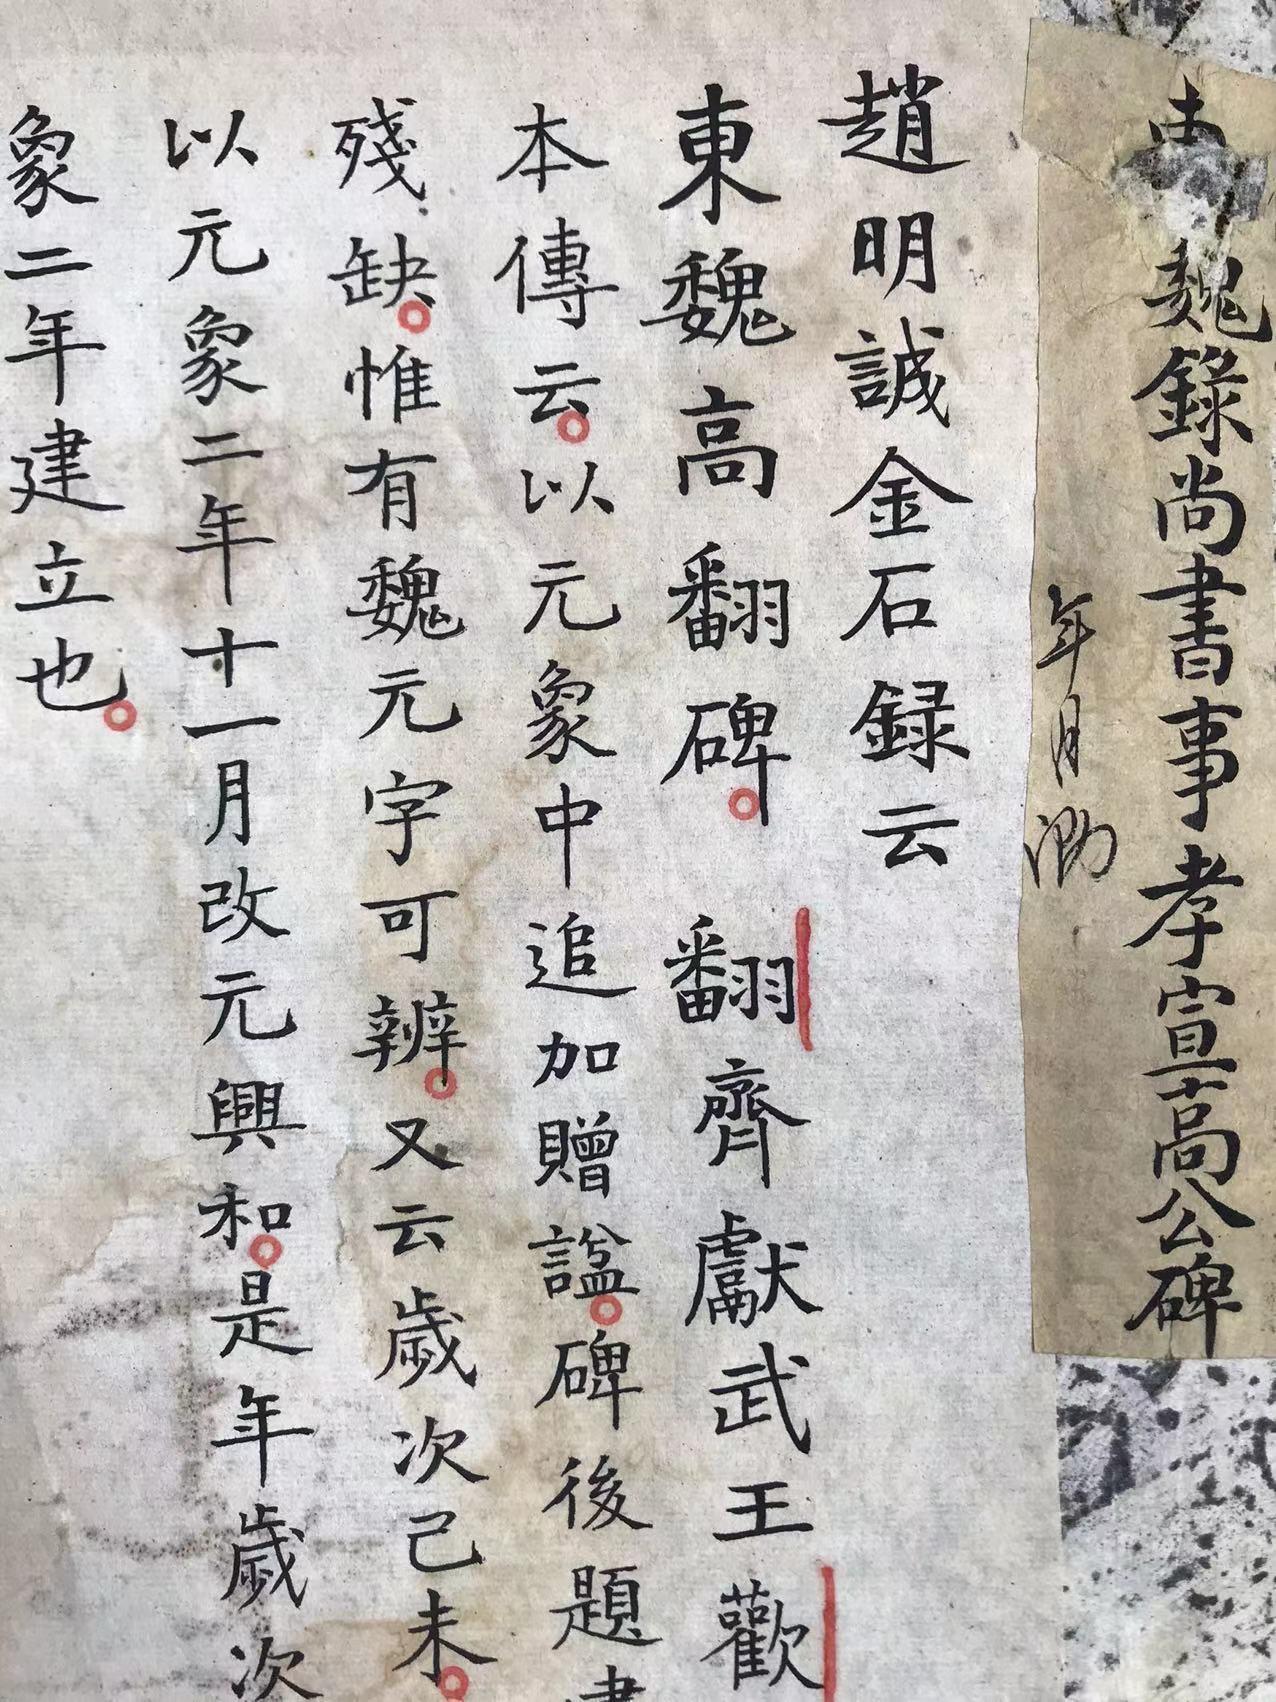 魏錄尚書事孝宣高公碑
年月泐
趙明誠金石録云
東魏高翻碑。翻齊獻武王歡
本傳云。以元象中追加贈諡。碑後題
殘缺。惟有魏元字可辨。又云歲次己未。
以元象二年十一月改元興和。是年歲次
象二年建立也。